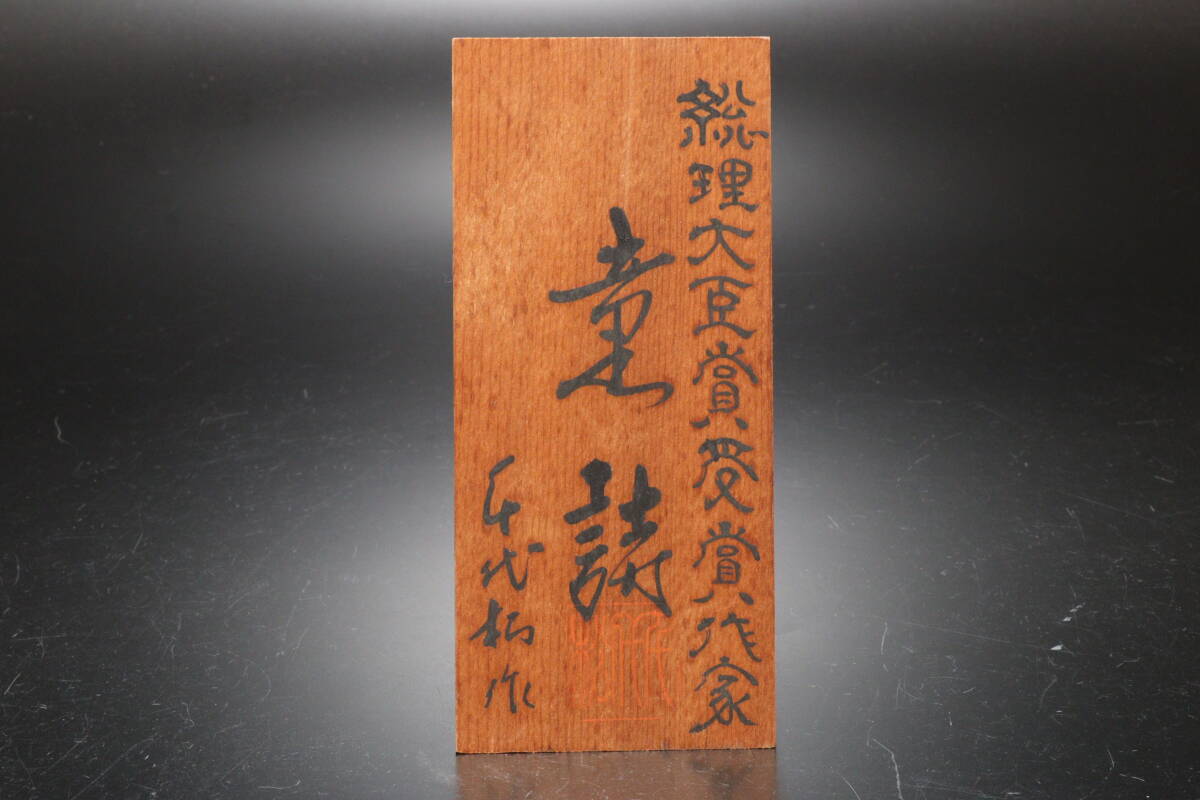 総理大臣賞受賞作家
童詩
千代松作